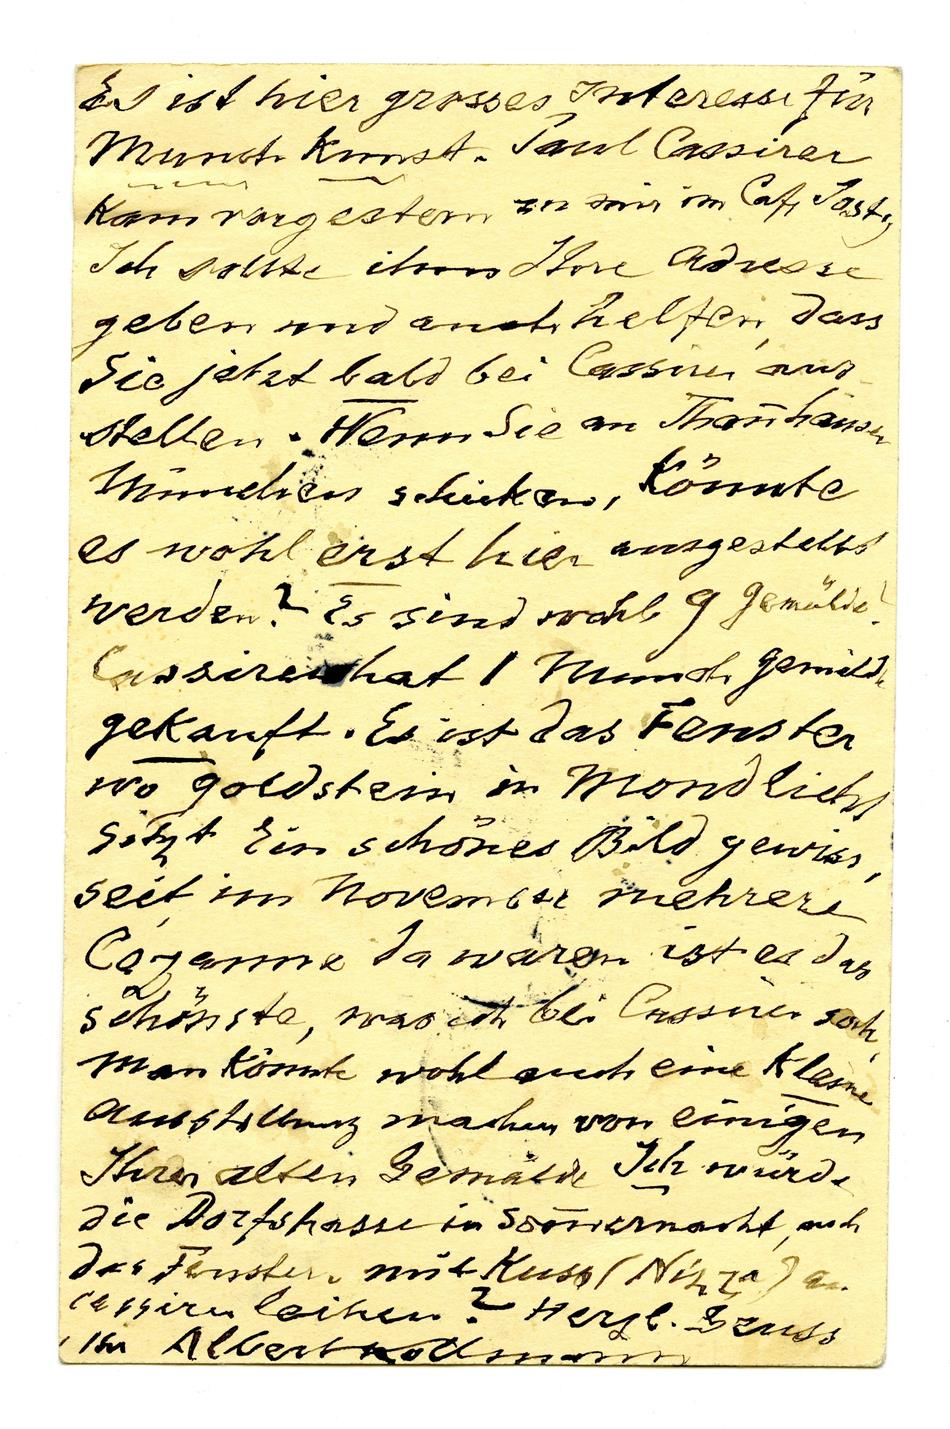 Es ist hier grosses Interesse für
Munch Kunst. Paul Cassirer
kam vorgestern zu mir im Café Josty
Ich sollte ihm Ihre Adresse
geben und auch helfen, dass
Sie jetzt bald bei Cassirer aus-
stellen. Wenn Sie an Thannhauser
München schicken, könnte
es wohl erst hier ausgestellt
werden? Es sind wohl 9 Gemälde?
Cassirer hat 1 Munch Gemälde
gekauft. Es ist das Fenster
wo Goldstein in Mondlicht
sitzt Ein schönes Bild gewiss,
seit im November mehrere
Cezanne da waren ist es das
schönste, was ich bei Cassirer sah,
Man könnte wohl auch eine kleine
Ausstellung machen von einigen
Ihrer alten Gemälde Ich würde
die Dorfstrasse in Somernacht, auch
das Fenster mit Kuss (Nizza) an
Cassirer leihen? Herzl. Gruss
Ihr Albert Kollmann